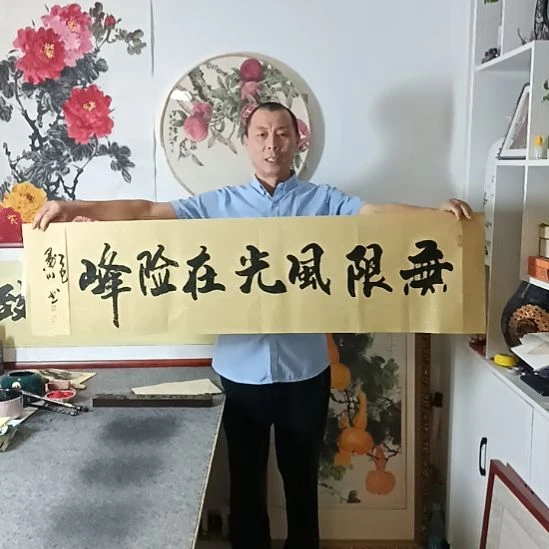 無限風光在险峰